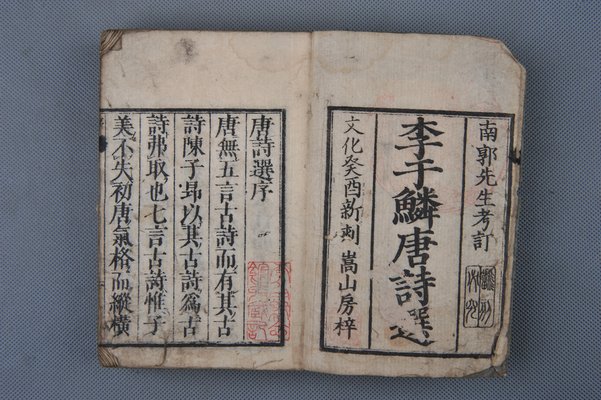 南郭先生考訂
李于鱗唐詩選
文化癸酉新刻 嵩山房梓
唐詩選序
唐無五言古詩而有其古
詩陳子昂以其古詩爲古
詩弗取也七言古詩惟子
美不失初唐氣格而縱橫